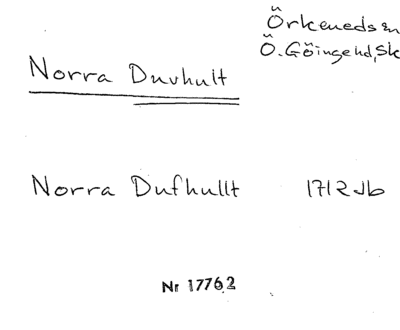 Örkeneds sn
Ö. Göinge hd, Sk
Norra Duvhult
Norra Dufhullt 1712 Jb
Nr 17762